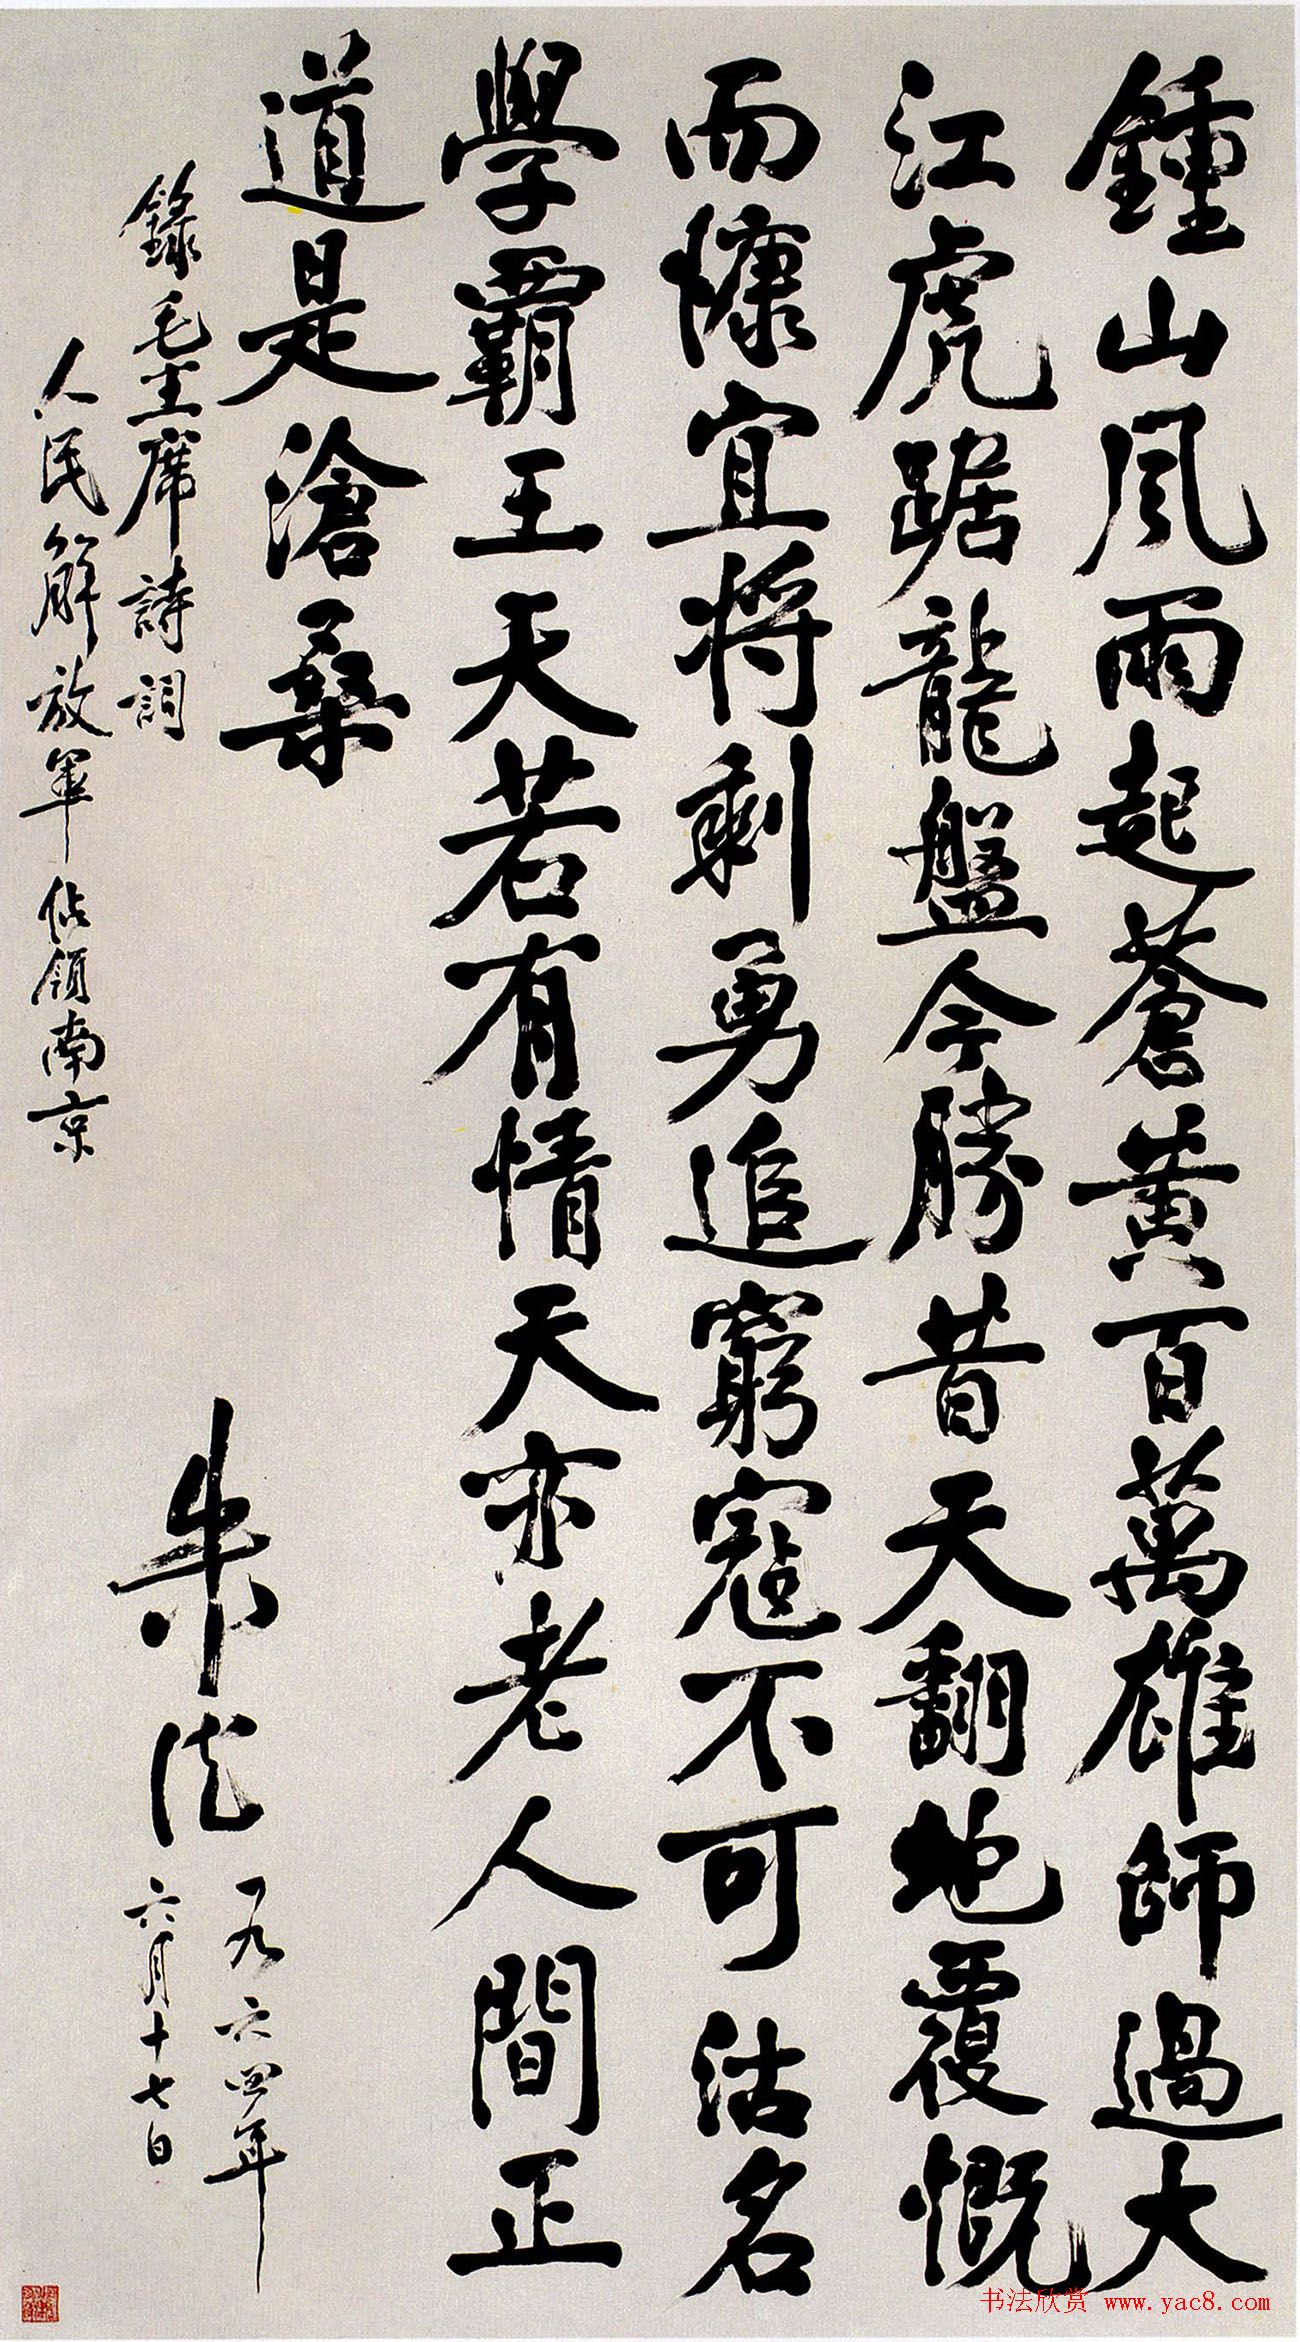 鍾山風雨起蒼黃百萬雄師過大
江虎踞龍盤今勝昔天翻地覆慨
而慷宜將剩勇追窮寇不可沽名
學霸王天若有情天亦老人間正
道是滄桑
錄毛主席詩詞
人民解放軍佔領南京
朱德
一九六四年
六月十七日
书法欣赏 www.yac8.com